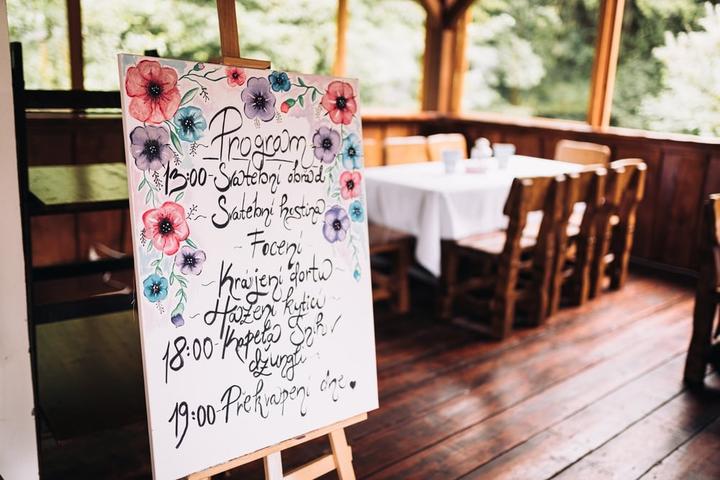 Program
13:00-Svatební obřad
Svatební hostina
Focení
Krájení dortu
Házení kyticí
18:00-Kapela Snih v
džungli
19:00-Překvapení dne